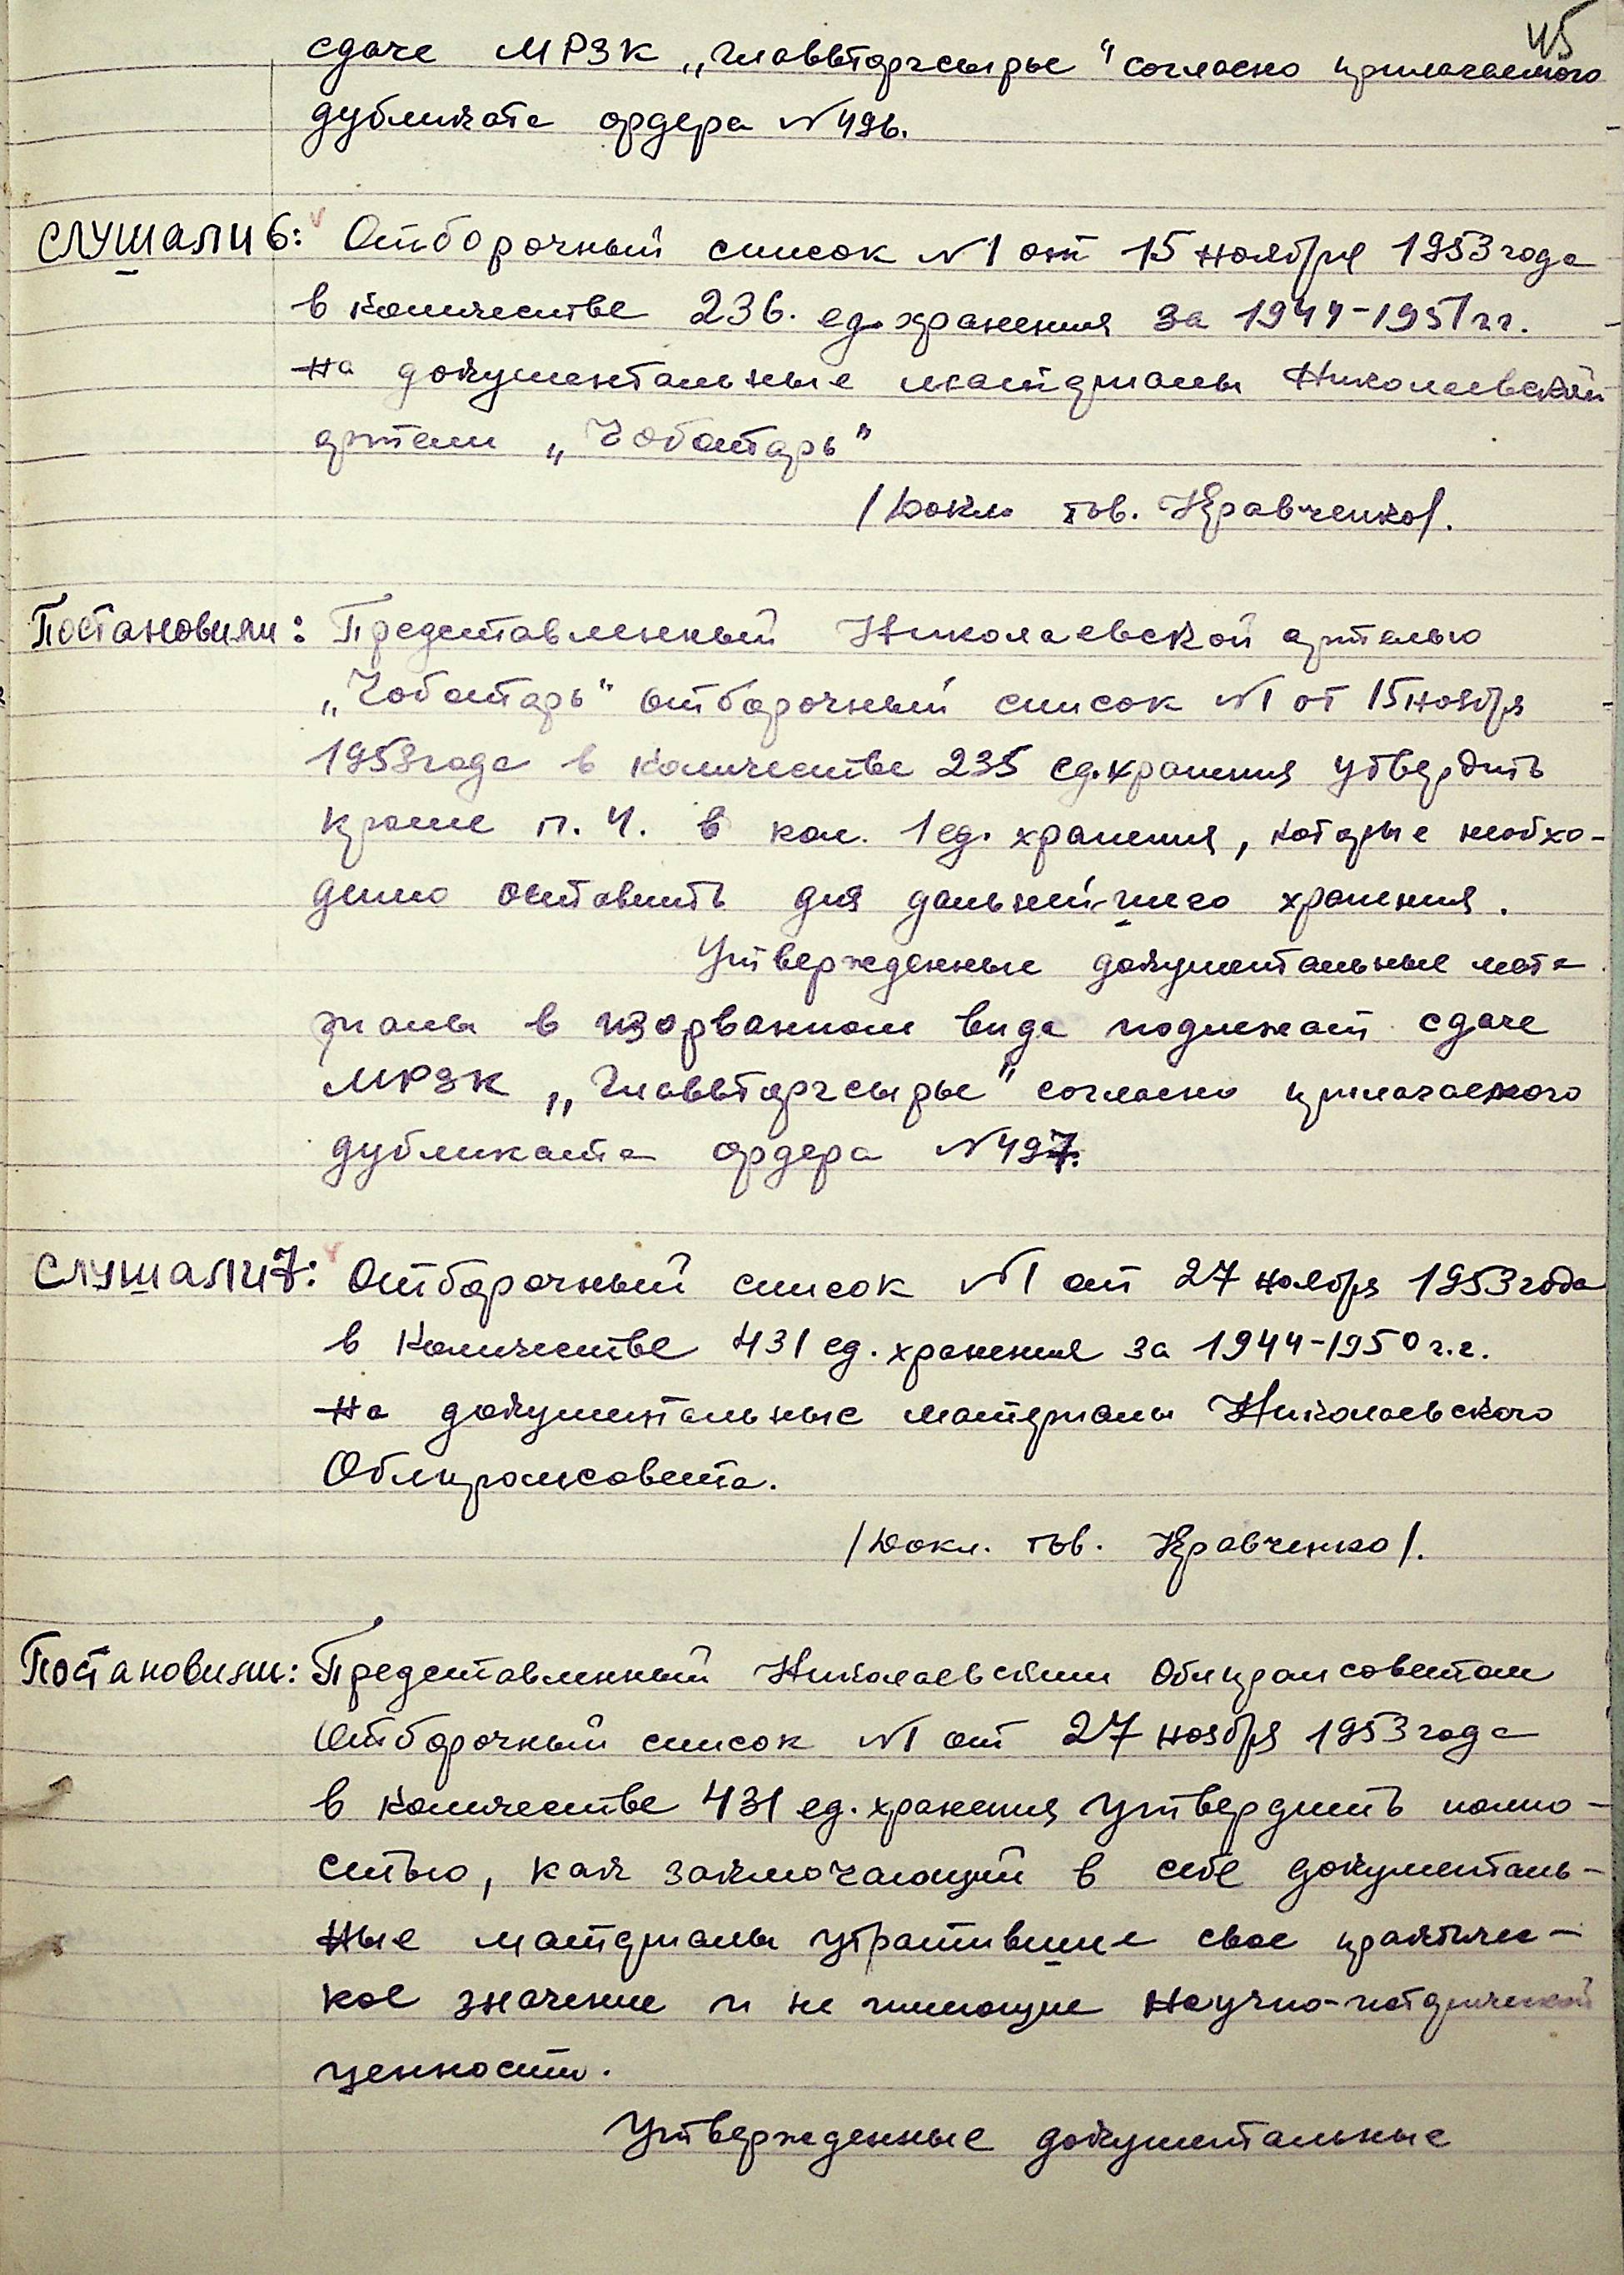 45
сдаче МРЗК „Главвторчсырье" согласно прилагаемого
дубликата ордера №496.
СЛУШАЛИ 6: Отборочный список №1 от 15 ноября 1953 года
в количестве 236. ед. хранения за 1944-1951 гг.
на документальные материалы Николаевской
артели „Чоботарь"
/Докл. тов. Кравченко/.
Постановили: Представленный Николаевской артелью
„Чоботарь" отборочный список №1 от 15 ноября
1953 года в количестве 235 ед. хранения утвердить
кроме п. 4. в кол. 1 ед. хранения, которые необхо-
димо оставить для дальнейшего хранения.
Утвержденные документальные мате
риалы в изорванном виде подлежат сдаче
МРЗК „Главвторчсырье" согласно прилагаемого
дубликата ордера №497.
СЛУШАЛИ 7: Отборочный список №1 от 27 ноября 1953 года
в количестве 431 ед. хранения за 1944-1950 г.г.
на документальные материалы Николаевского
Облпромсовета.
/Докл. тов. Кравченко/.
Постановили: Представленный Николаевским Облпромсоветом
Отборочный список №1 от 27 ноября 1953 года
в количестве 431 ед. хранения утвердить полно-
стью, как заключающий в себе документаль-
ные материалы утратившие свое практичес-
кое значение и не имеющие научно-исторической
ценности.
Утвержденные документальные